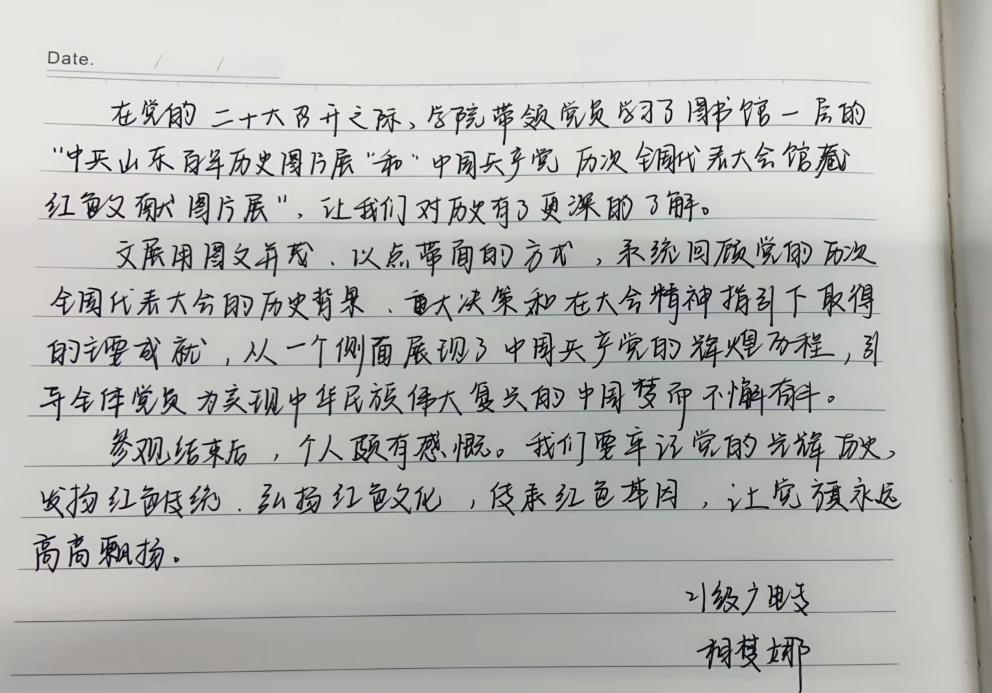 Date. / /
在党的二十大召开之际、学院带领党员学习了图书馆一层的
"中共山东百年历史图片展"和"中国共产党历次全国代表大会馆藏
红色文献图片展"，让我们对历史有了更深的了解。
文展用图文并茂、以点带面的方式，系统回顾党的历次
全国代表大会的历史背景、重大决策和在大会精神指引下取得
的主要成就，从一个侧面展现了中国共产党的辉煌历程，引
导全体党员为实现中华民族伟大复兴的中国梦而不懈奋斗。
参观结束后，个人颇有感慨。我们要牢记党的光辉历史、
发扬红色传统、弘扬红色文化，传承红色基因，让党旗永远
高高飘扬。
21级广电专
相梦娜